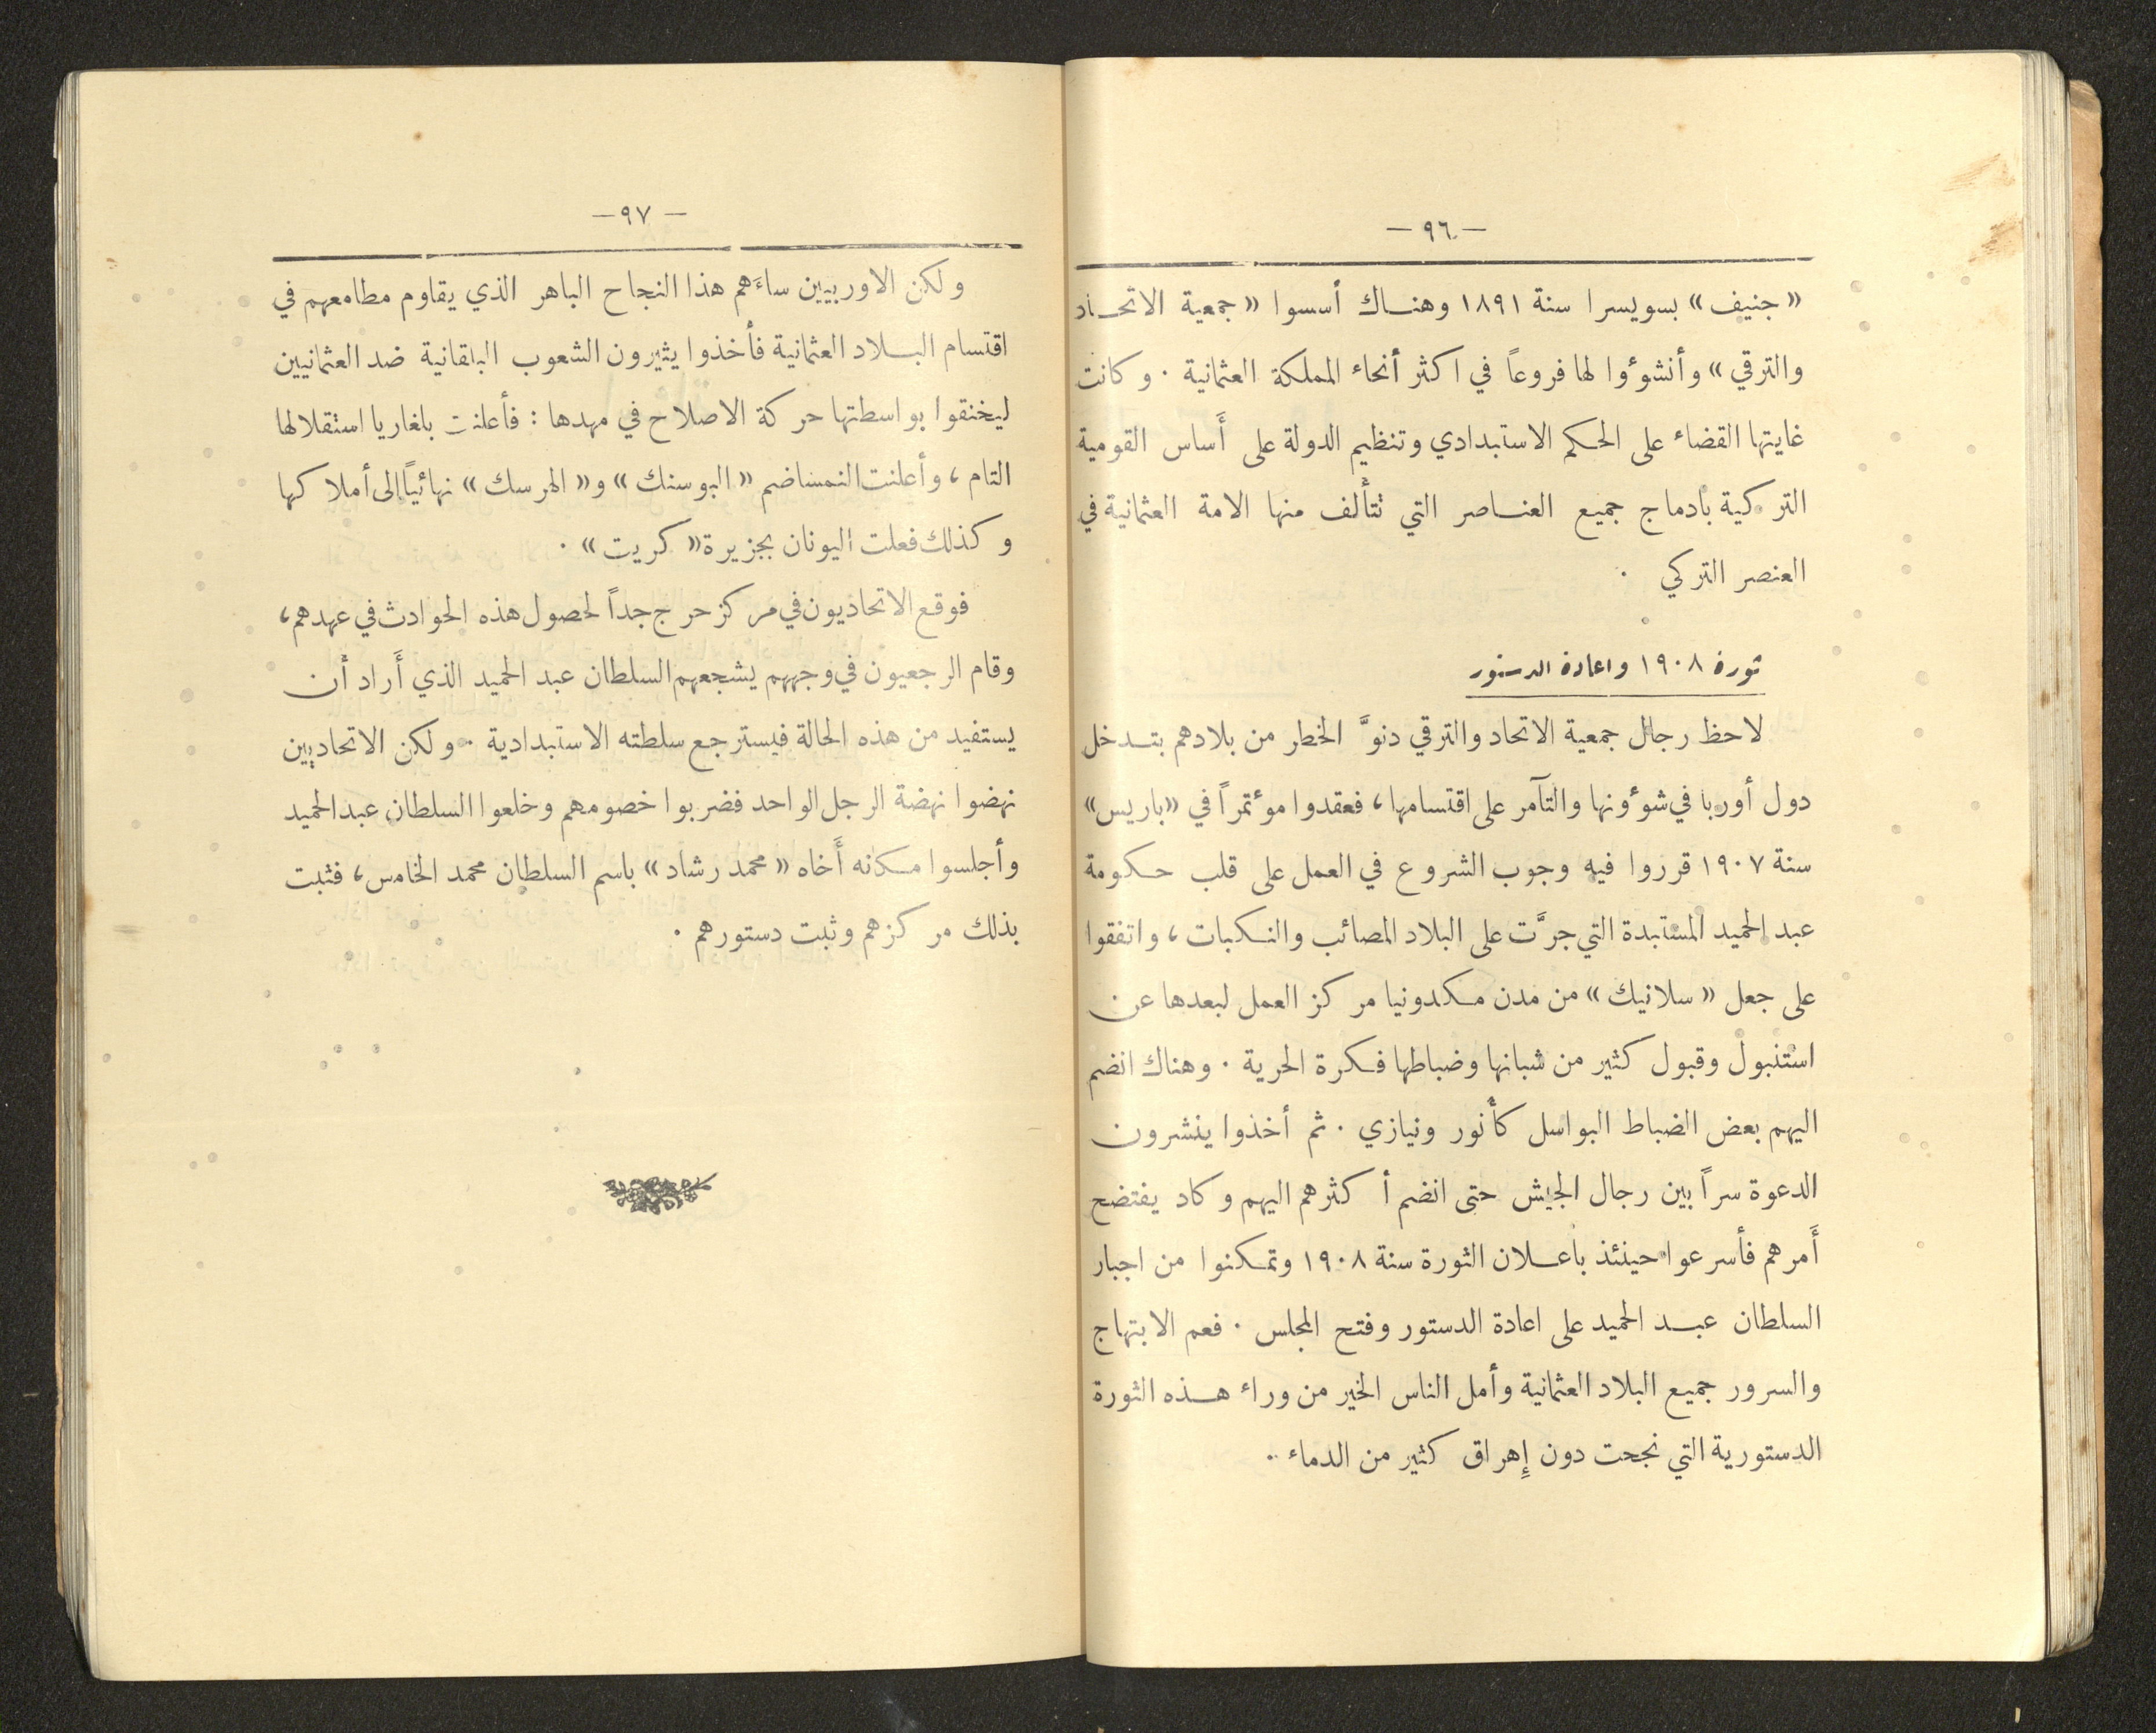 — ٩٦ —
«جنيف» بسويسرا سنة ١٨٩١ وهناك أسسوا «جمعية الاتحاد
والترقي» وأنشوؤوا لها فروعاً في اكثر أنحاء المملكة العثمانية . وكانت
غايتها القضاء على الحكم الاستبدادي وتنظيم الدولة على أَساس القومية
التركية بادماج جميع العناصر التي تتألف منها الامة العثمانية في
العنصر التركي .
ثورة ١٩٠٨ واعادة الدستور
لاحظ رجال جمعية الاتحاد والترقي دنوَّ الخطر من بلادهم بتدخل
دول أوربا في شوؤونها والتآمر على اقتسامها ، فعقدوا موؤتمراً في «باريس»
سنة ١٩٠٧ قرروا فيه وجوب الشروع في العمل على قلب حكومة
عبد الحميد المستبدة التي جرَّت على البلاد المصائب والنكبات ، واتفقوا
على جعل «سلانيك» من مدن مكدونيا مركز العمل لبعدها عن
استنبول وقبول كثير من شبانها وضباطها فكرة الحرية . وهناك انضم
اليهم بعض الضباط البواسل كأنور ونيازي . ثم أخذوا ينشرون
الدعوة سراً بين رجال الجيش حتى انضم أكثرهم اليهم وكاد يفتضح
أَمرهم فأسرعوا حينئذ باعلان الثورة سنة ١٩٠٨ وتمكنوا من اجبار
السلطان عبد الحميد على اعادة الدستور وفتح المجلس . فعم الابتهاج
والسرور جميع البلاد العثمانية وأمل الناس الخير من وراء هذه الثورة
الدستورية التي نجحت دون إِهراق كثير من الدماء ..
— ٩٧ —
ولكن الاوربيين ساءَهم هذا النجاح الباهر الذي يقاوم مطامعهم في
اقتسام البلاد العثمانية فأخذوا يثيرون الشعوب البلقانية ضد العثمانيين
ليخنقوا بواسطتها حركة الاصلاح في مهدها : فأعلنت بلغاريا استقلالها
التام ، وأعلنت النمسا ضم «البوسنك» و«الهرسك» نهائيًا إلى أملاكها
وكذلك فعلت اليونان بجزيرة «كريت» .
فوقع الاتحاديون في مركز حرج جداً لحصول هذه الحوادث في عهدهم ،
وقام الرجعيون في وجههم يشجعهم السلطان عبد الحميد الذي أَراد أن
يستفيد من هذه الحالة فيسترجع سلطته الاستبدادية . ولكن الاتحاديين
نهضوا نهضة الرجل الواحد فضربوا خصومهم وخلعوا السلطان عبد الحميد
وأجلسوا مكانه أَخاه «محمد رشاد» باسم السلطان محمد الخامس ، فثبت
بذلك مركزهم وثبت دستورهم .